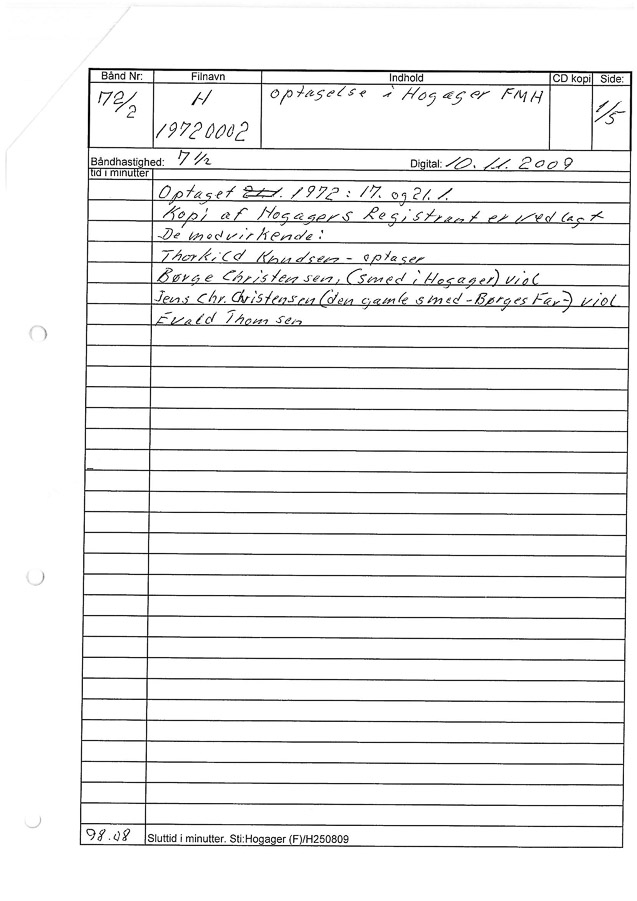 Bånd Nr: Filnavn Indhold CD kopi Side:
72/2 H optagelse i Hogager FMH 1/5
19720002
Båndhastighed: 7 1/2 Digital: 10.11.2009
tid i minutter
Optaget 1972: 17. og 21.1.
Kopi af Hogagers Registrant er vedlagt
De medvirkende:
Thorkild Knudsen - optager
Børge Christensen, (smed i Hogager) viol
Jens Chr. Christensen (den gamle smed - Børges Far -) viol
Evald Thomsen
98.08 Sluttid i minutter. Sti:Hogager (F)/H250809